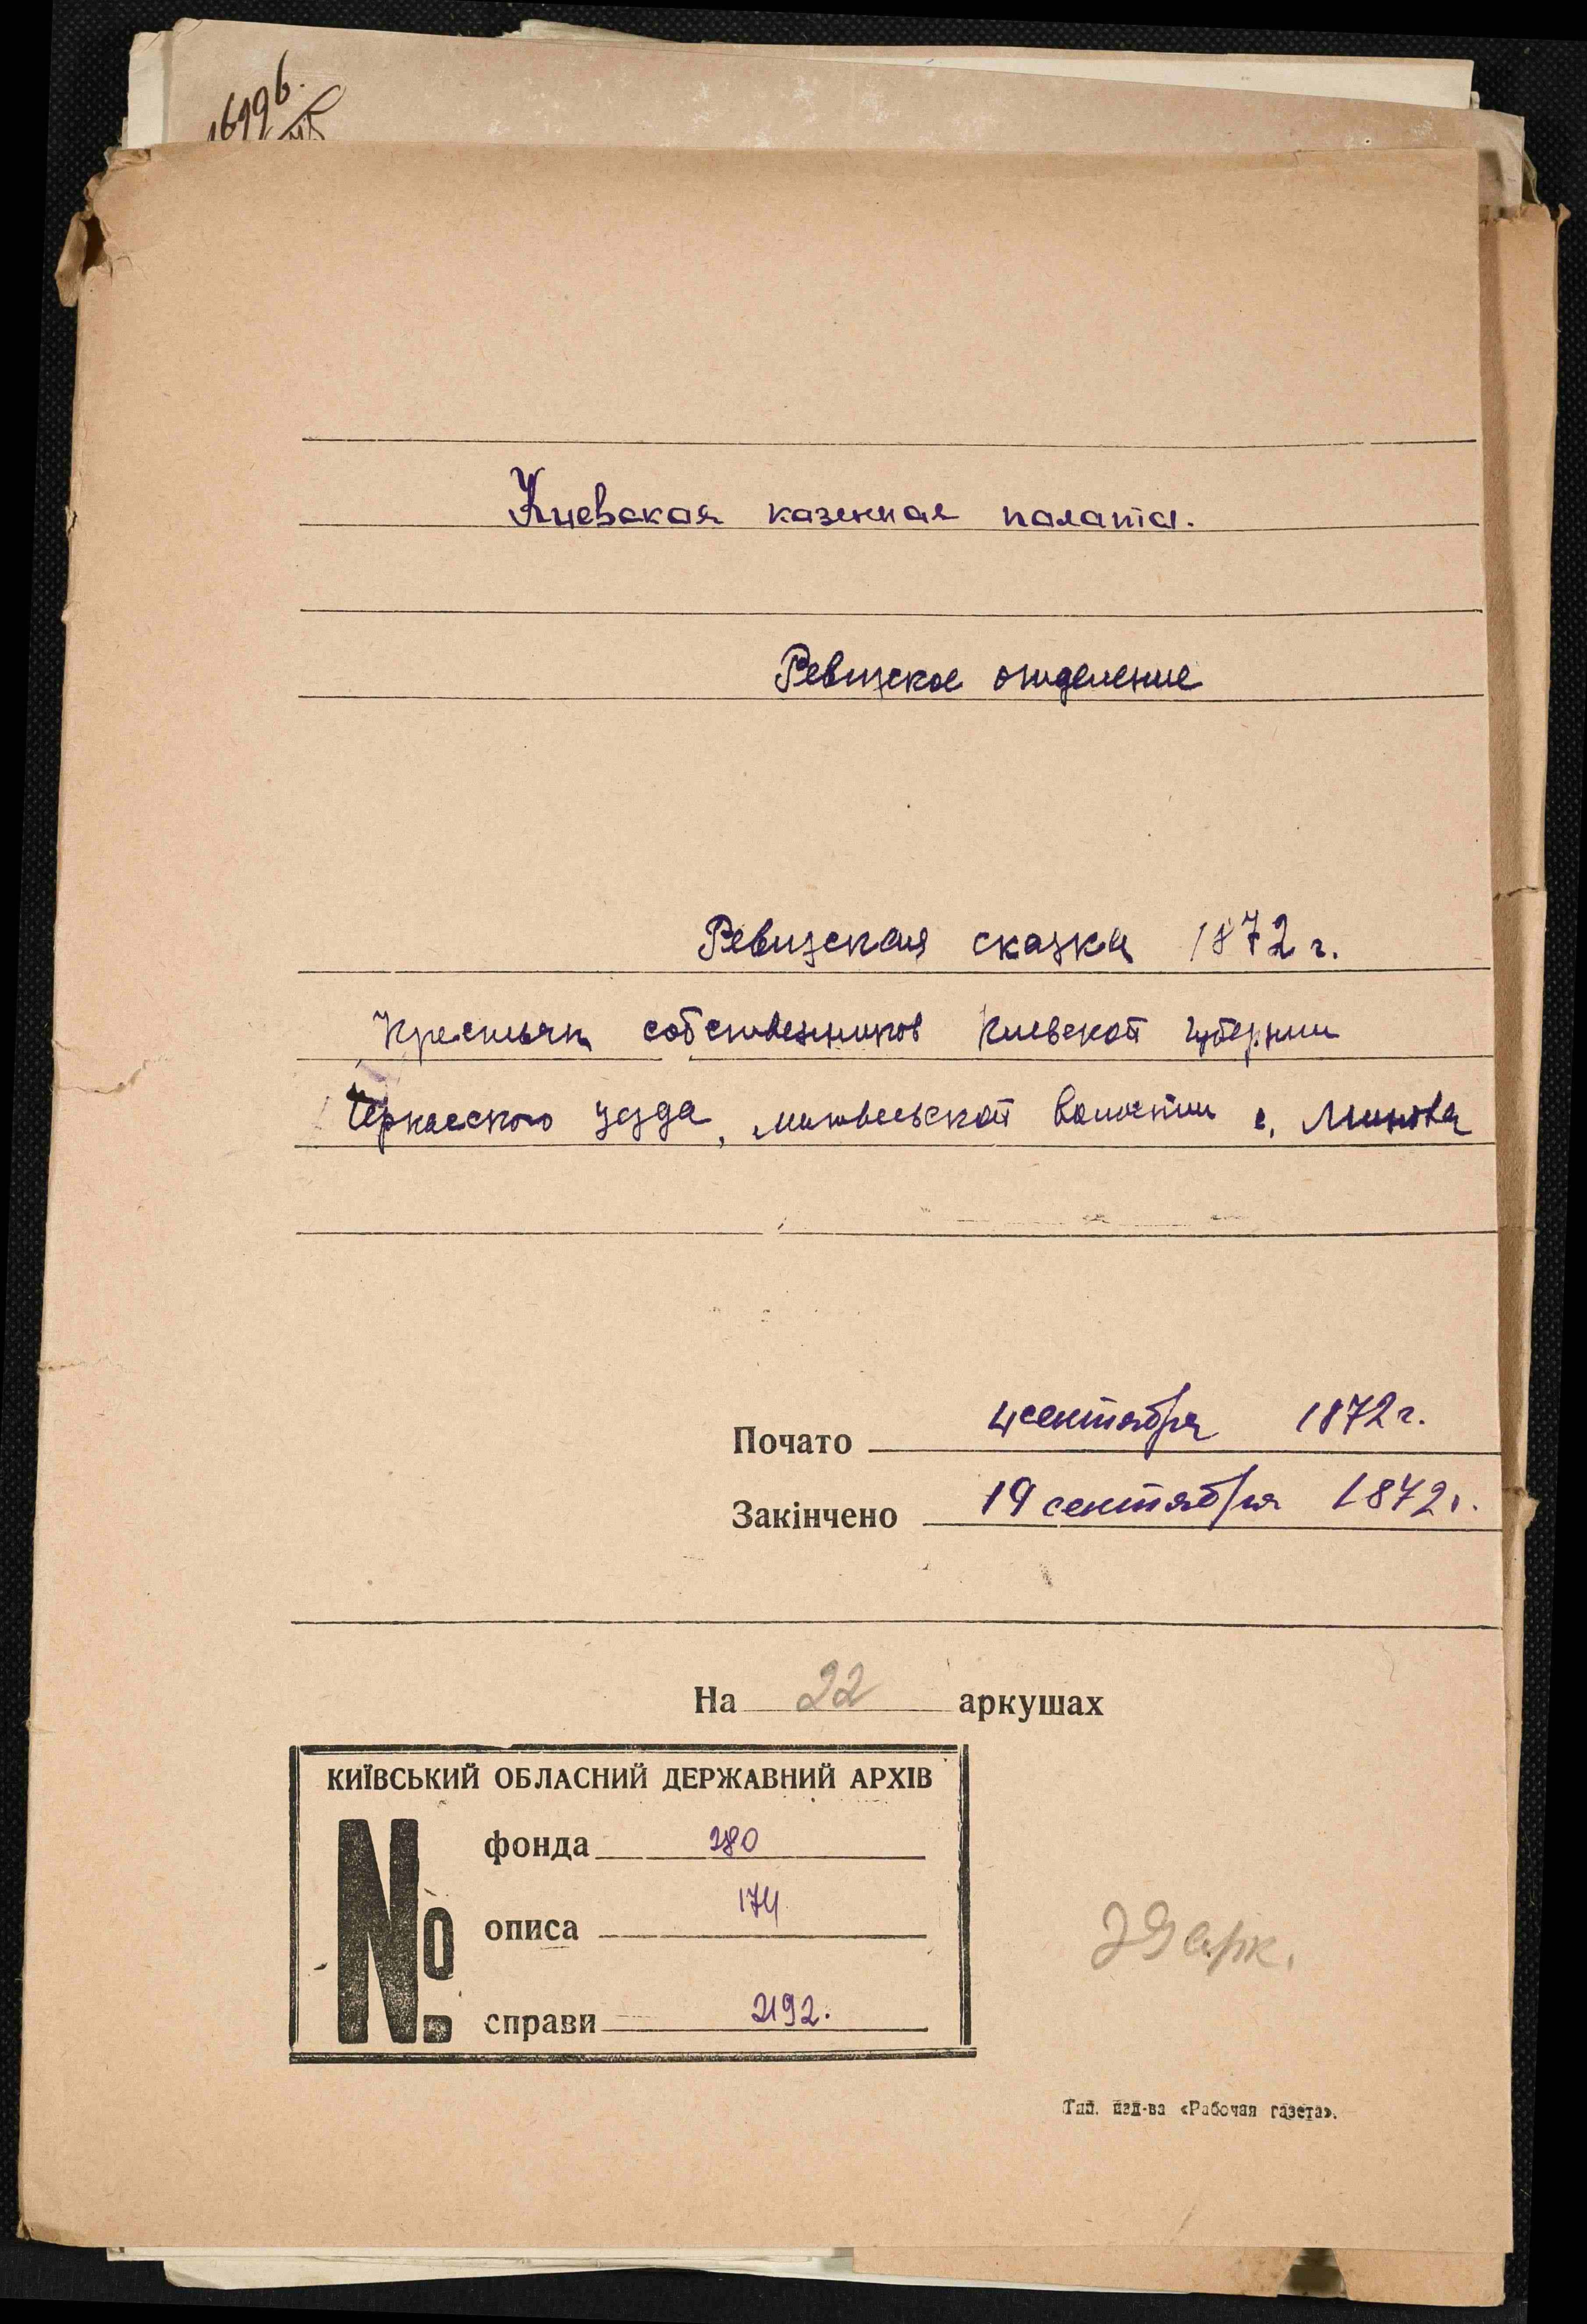 1699б.
Киевская казенная палата.
Ревизское отделение
Ревизская сказка 1872 г.
Крестьян собственников Киевской губернии
Черкасского уезда, волости с.
Почато 4 сентября 1872 г.
Закінчено 19 сентября 1872 г.
На 22 аркушах
КИЇВСЬКИЙ ОБЛАСНИЙ ДЕРЖАВНИЙ АРХІВ
№
фонда 280
описа 174
справи 2192.
арк.
Тип. изд-ва «Рабочая газета».